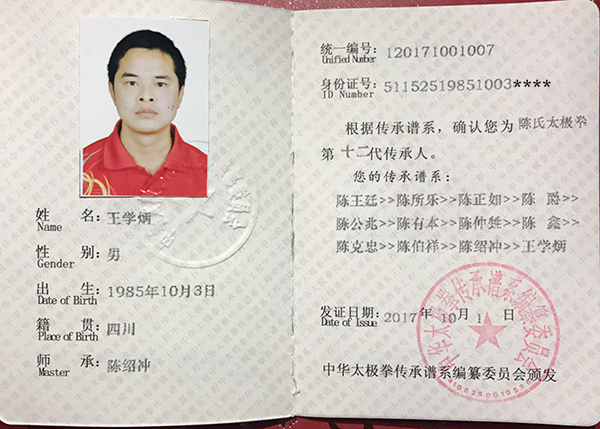 姓名：王学炳
Name
性别：男
Gender
出生：1985年10月3日
Date of Birth
籍贯：四川
Place of Birth
师承：陈绍冲
Master
统一编号：120171001007
Unified Number
身份证号：51152519851003****
ID Number
根据传承谱系，确认您为 陈氏太极拳
第 十二代传承人。
您的传承谱系：
陈王廷>>陈所乐>>陈正如>>陈 爵>>
陈公兆>>陈有本>>陈仲甡>>陈 鑫>>
陈克忠>>陈伯祥>>陈绍冲>>王学炳
发证日期：2017年10月1日
Date of Issue
中华太极拳传承谱系编纂委员会颁发
中华太极拳传承谱系编纂委员会